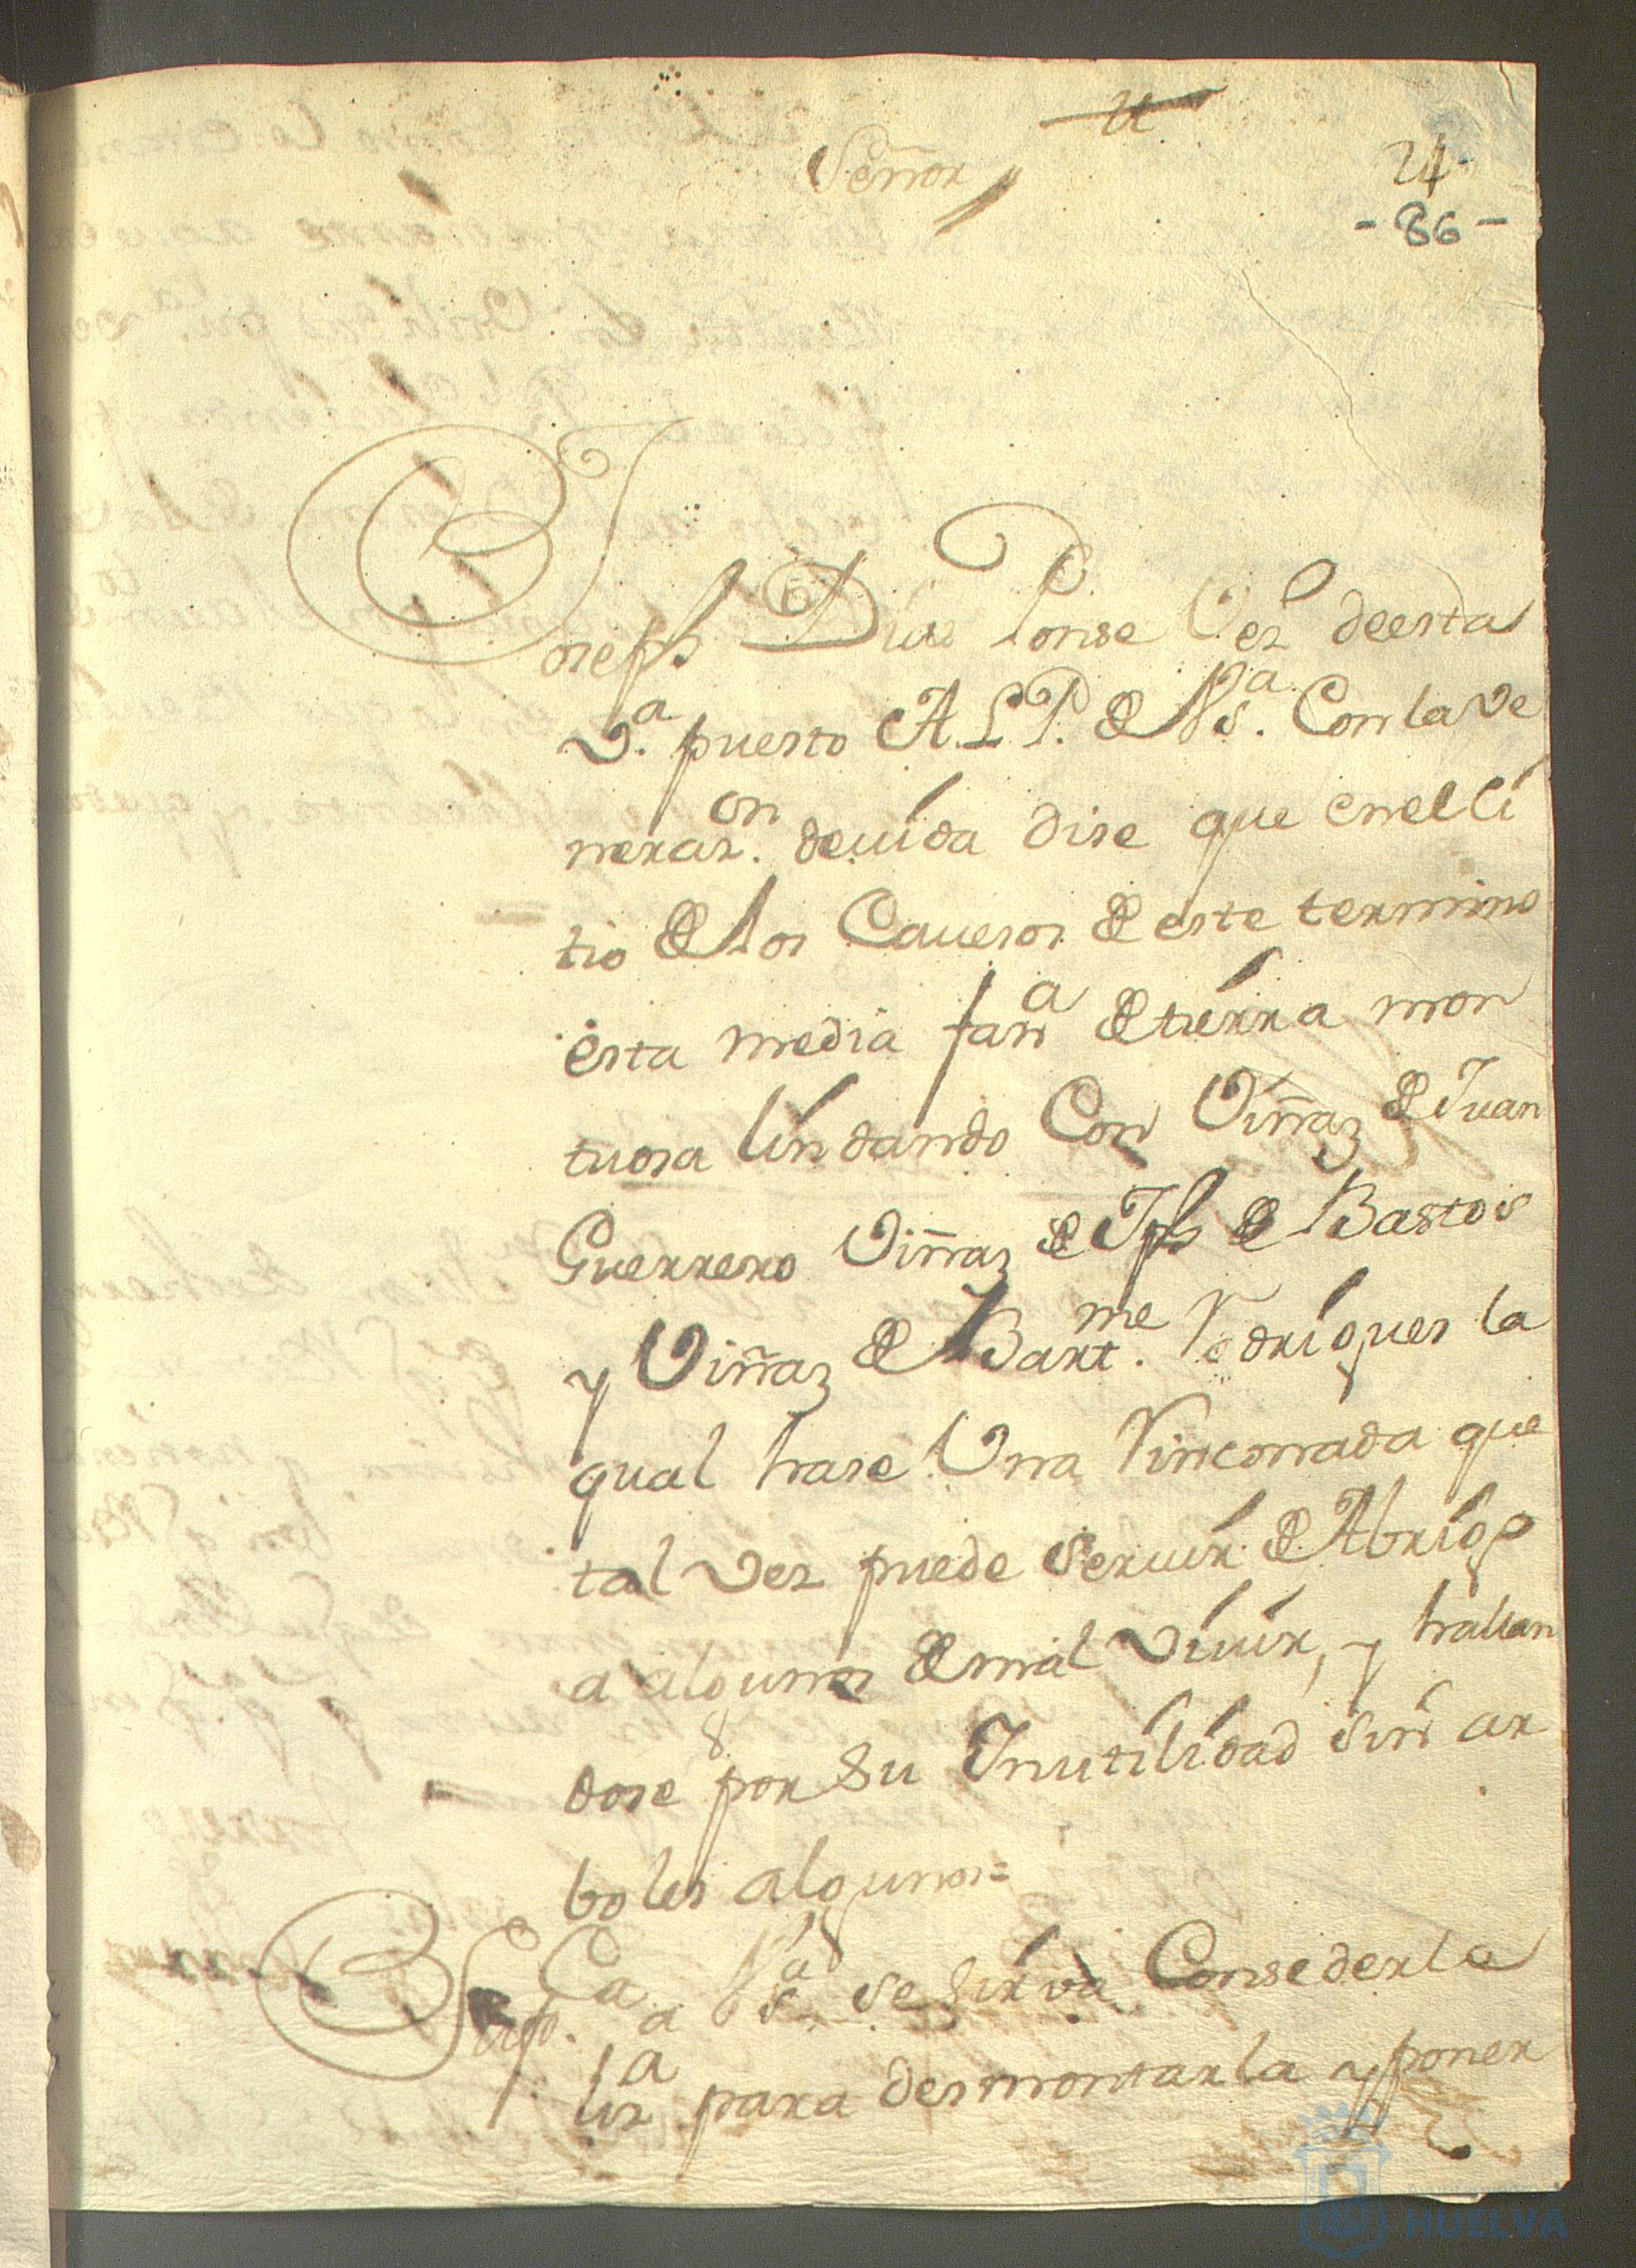 Señor
24
-86-
Joseph Dias Ponse Vez.º deesta
V.ª puesto A.L.P. de Vs.ª Con la Ve
neraz.on deuida dise que enel Si
tio de los Cauesos de este termino
esta media fan.ª de tierra mon
tuosa lindando Con Viñas de Juan
Guerrero Viñas de Jph de Bastos
y Viñas de Bart.me Rodrigues la
qual hase Una Rinconada que
tal ves puede seruir de Abrigo
a algunos de mal Viuir, y hallan
dose por su Inutilidad sin ar
boles algunos=
Sup.ca a Vs.ª se sirva Consederle
liz.ª para desmontarla y poner
HUELVA